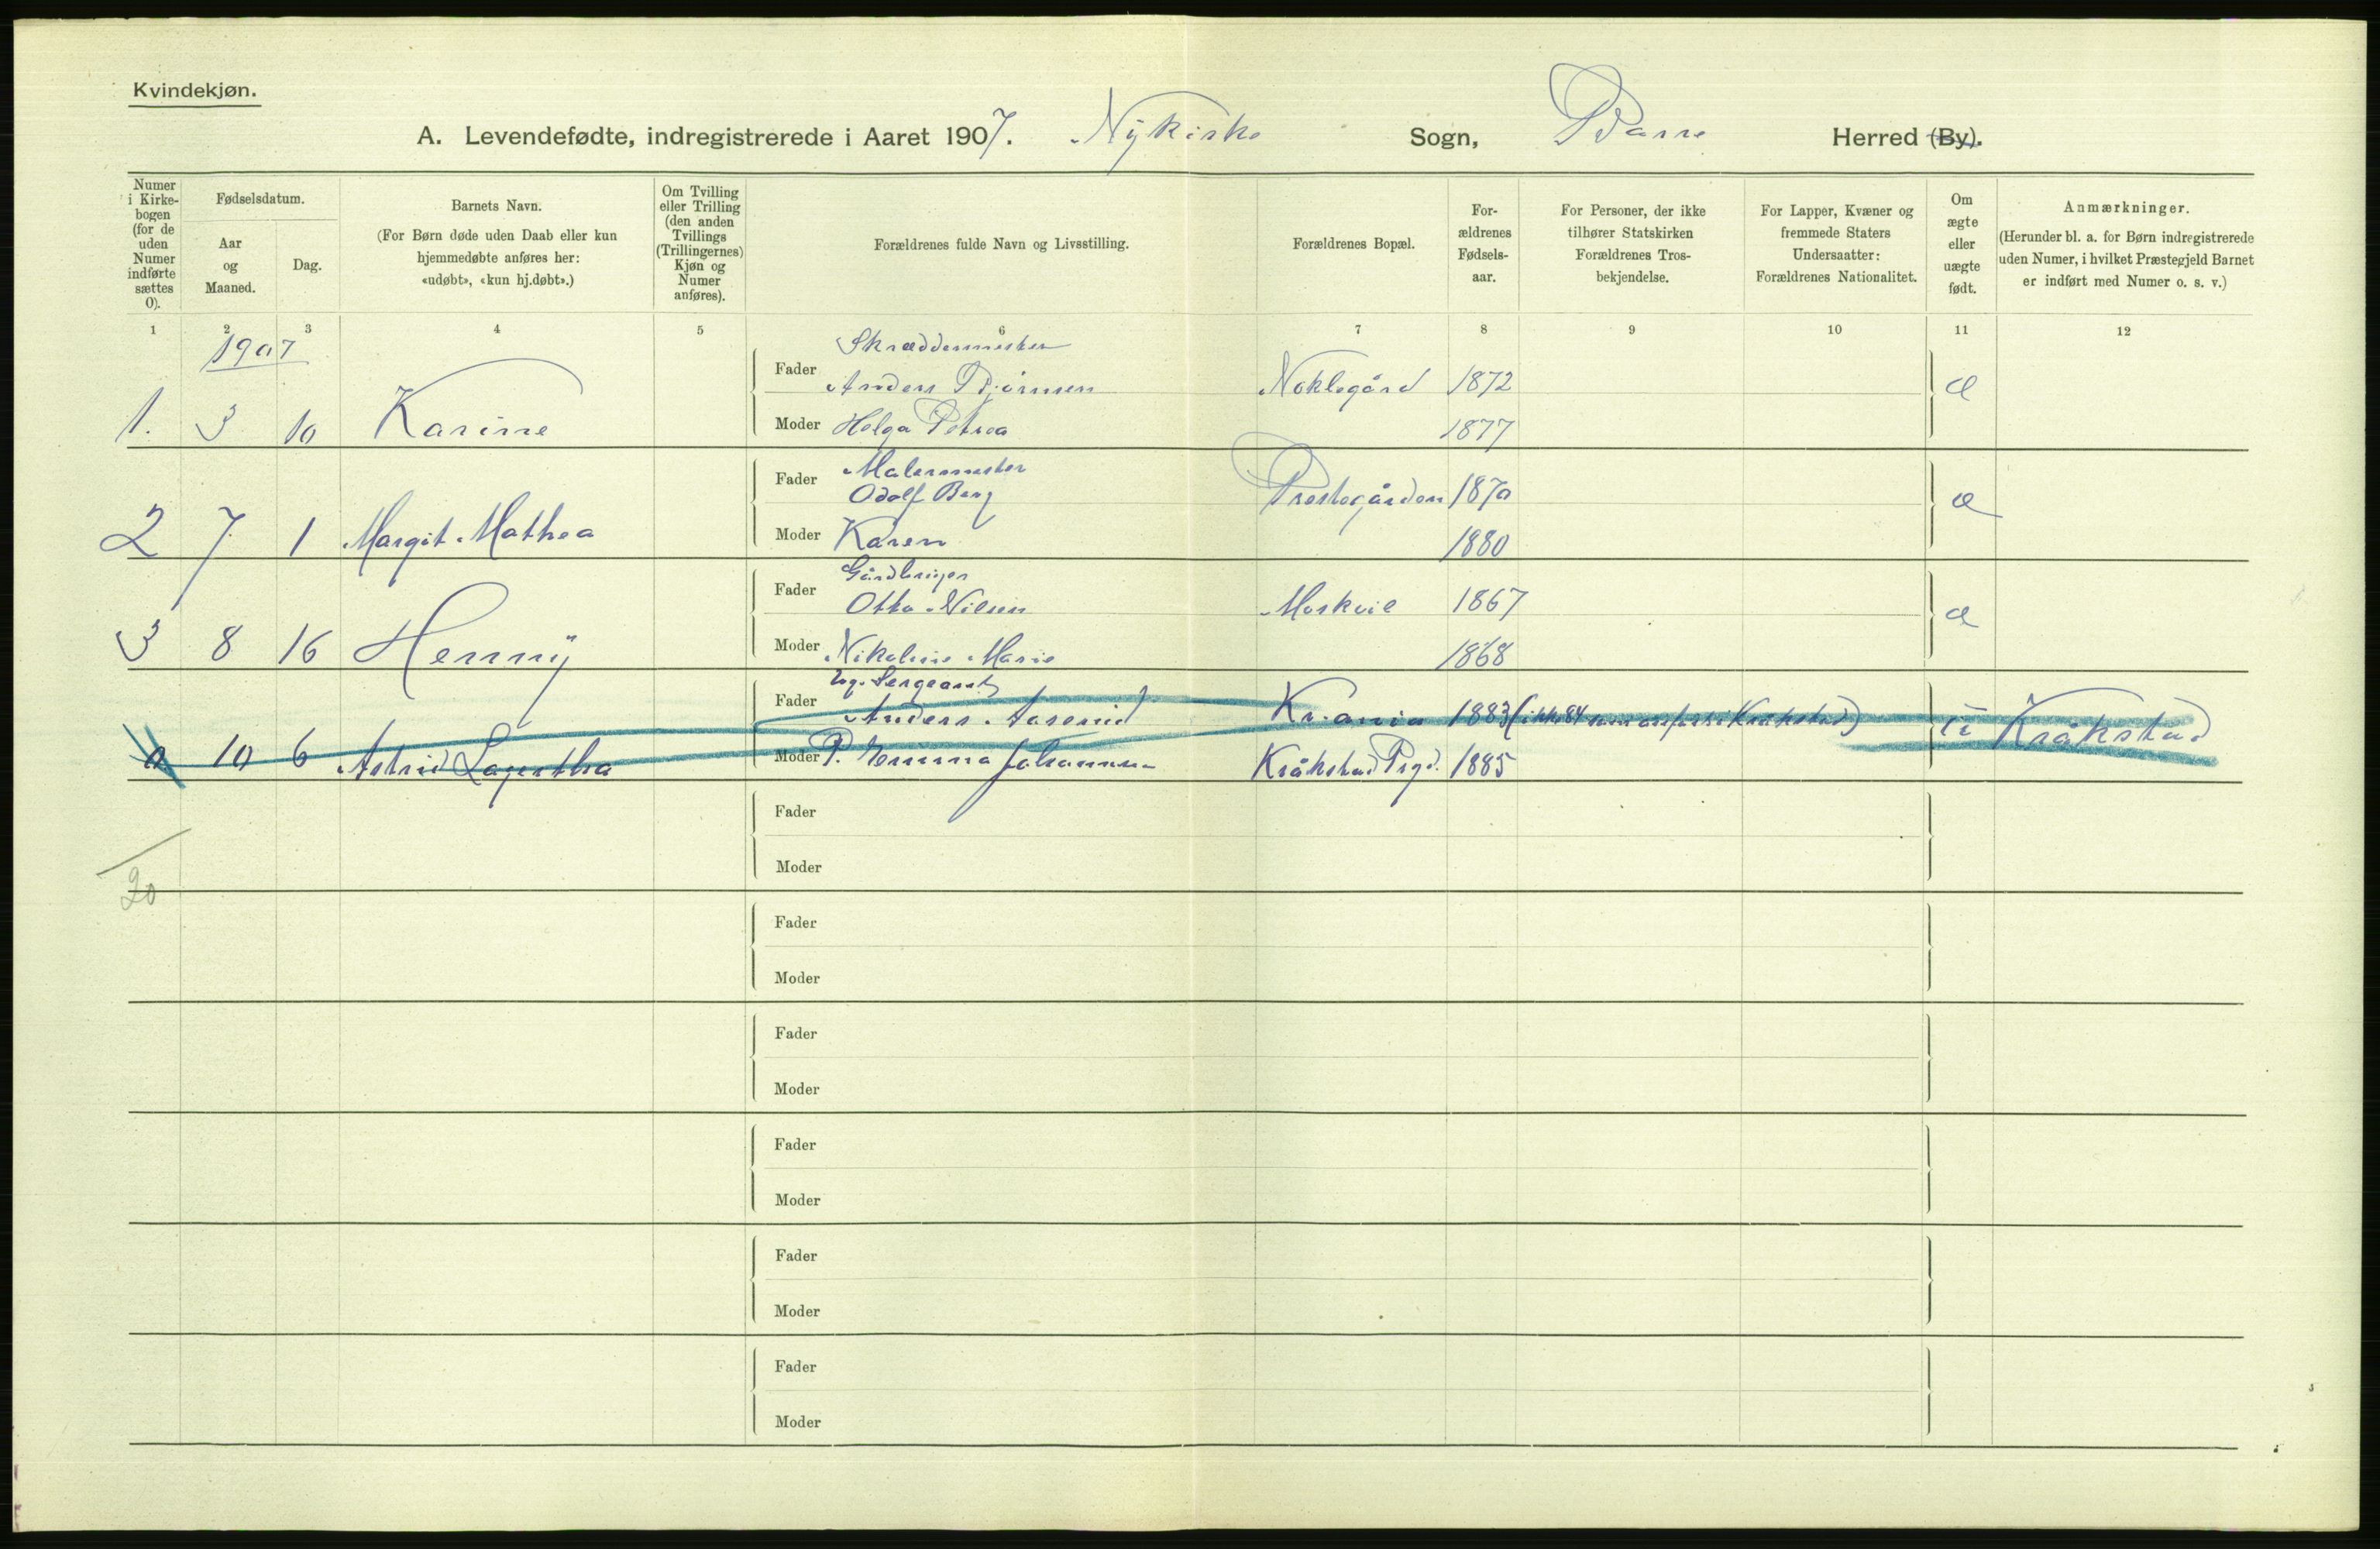 Kvindekjøn.
A. Levendefødte, indregistrerede i Aaret 1907. Nykirke Sogn, Borre Herred (By).
Numer i Kirke-bogen (for de uden Numer indførte sættes 0).
Fødselsdatum.
Aar og Maaned.
Dag.
Barnets Navn.
(For Børn døde uden Daab eller kun hjemmedøbte anføres her: «udøbt», «kun hj.døbt».)
Om Tvilling eller Trilling (den anden Tvillings (Trillingernes) Kjøn og Numer anføres).
Forældrenes fulde Navn og Livsstilling.
Forældrenes Bopæl.
For-ældrenes Fødsels-aar.
For Personer, der ikke tilhører Statskirken Forældrenes Tros-bekjendelse.
For Lapper, Kvæner og fremmede Staters Undersaatter: Forældrenes Nationalitet.
Om ægte eller uægte født.
Anmærkninger.
(Herunder bl. a. for Børn indregistrerede uden Numer, i hvilket Præstegjeld Barnet er indført med Numer o. s. v.)
1 2 3 4 5 6 7 8 9 10 11 12
1907
Skræddermester
Fader Anders Bjørnsen Noklegård 1872 æ
1. 3 10 Karine Moder Helga Petrea 1877
Malermester
Fader Odolf Berg Prestegården 1870 æ
2 7 1 Margit Mathea Moder Karen 1880
Gårdbruger
Fader Otto Nilsen 1867 æ
3 8 16 Henny Moder Nikoline Marie 1868
Ug. Sergeant
Fader Anders Kr.ania 1883 (ikke 84 som anført i Kråkstad) Kråkstad
0 10 6 Astrid Lagertha Moder P. Emma Johannesen Kråkstad Prgd. 1885
Fader
Moder
20
Fader
Moder
Fader
Moder
Fader
Moder
Fader
Moder
Fader
Moder